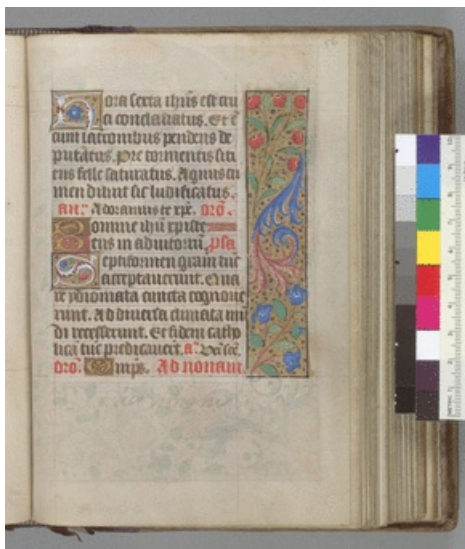 Hora sexta ihus est cru
ci conclavatus. Et est
cum latronibus pendens de
putatus. Pre tormentis siti
ens felle saturatus. Agnus cri
men diluit sic ludificatus.
an. Adoramus te xpe. oro.
Domine ihu xpiste
Deus in adiutorium. psa
Septiformen gratiam tunc
acceptaverunt. Qua
re ydiomata cuncta cognove
runt. Ad diversa climata mun
di recesserunt. Et fidem catho
licam tunc predicaverunt. a. Veni sce.
oro. Omps. Ad nonam.
56